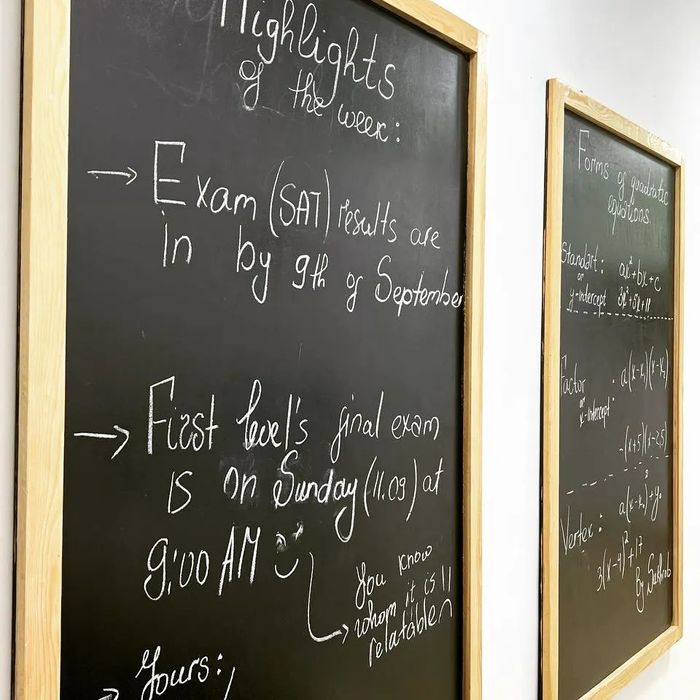 Highlights
of the week:
→ Exam (SAT) results are
in by 9th of September
→ First level's final exam
is on Sunday (11.09) at
9:00 AM
You know
whom it is
relatable
→ Yours:
Forms of quadratic
equations
Standart: ax²+bx+c
or
y-intercept 3x²+5x+11
Factor a(x-x₁)(x-x₂)
or
x-intercept:
(x+5)(x-2,5)
Vertex: a(x-x₀)²+y₀
3(x-4)²+17
By